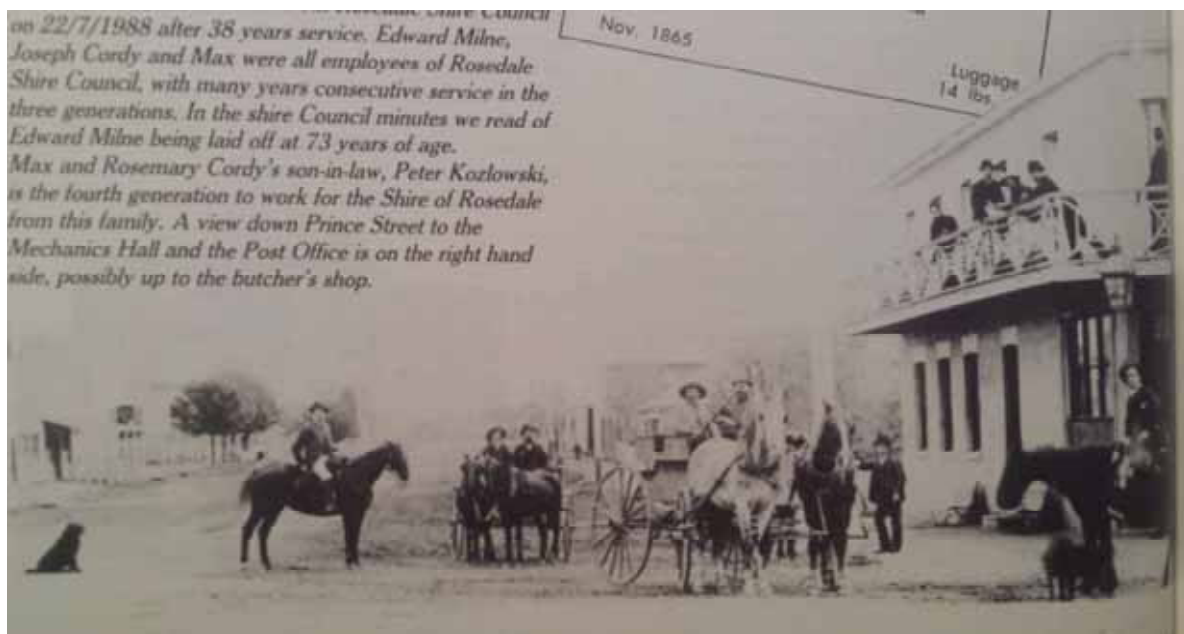 Shire Council
on 22/7/1988 after 38 years service. Edward Milne,
Joseph Cordy and Max were all employees of Rosedale
Shire Council, with many years consecutive service in the
three generations. In the shire Council minutes we read of
Edward Milne being laid off at 73 years of age.
Max and Rosemary Cordy's son-in-law, Peter Kozlowski,
is the fourth generation to work for the Shire of Rosedale
from this family. A view down Prince Street to the
Mechanics Hall and the Post Office is on the right hand
side, possibly up to the butcher's shop.
Nov. 1865
Luggage
14 lbs.